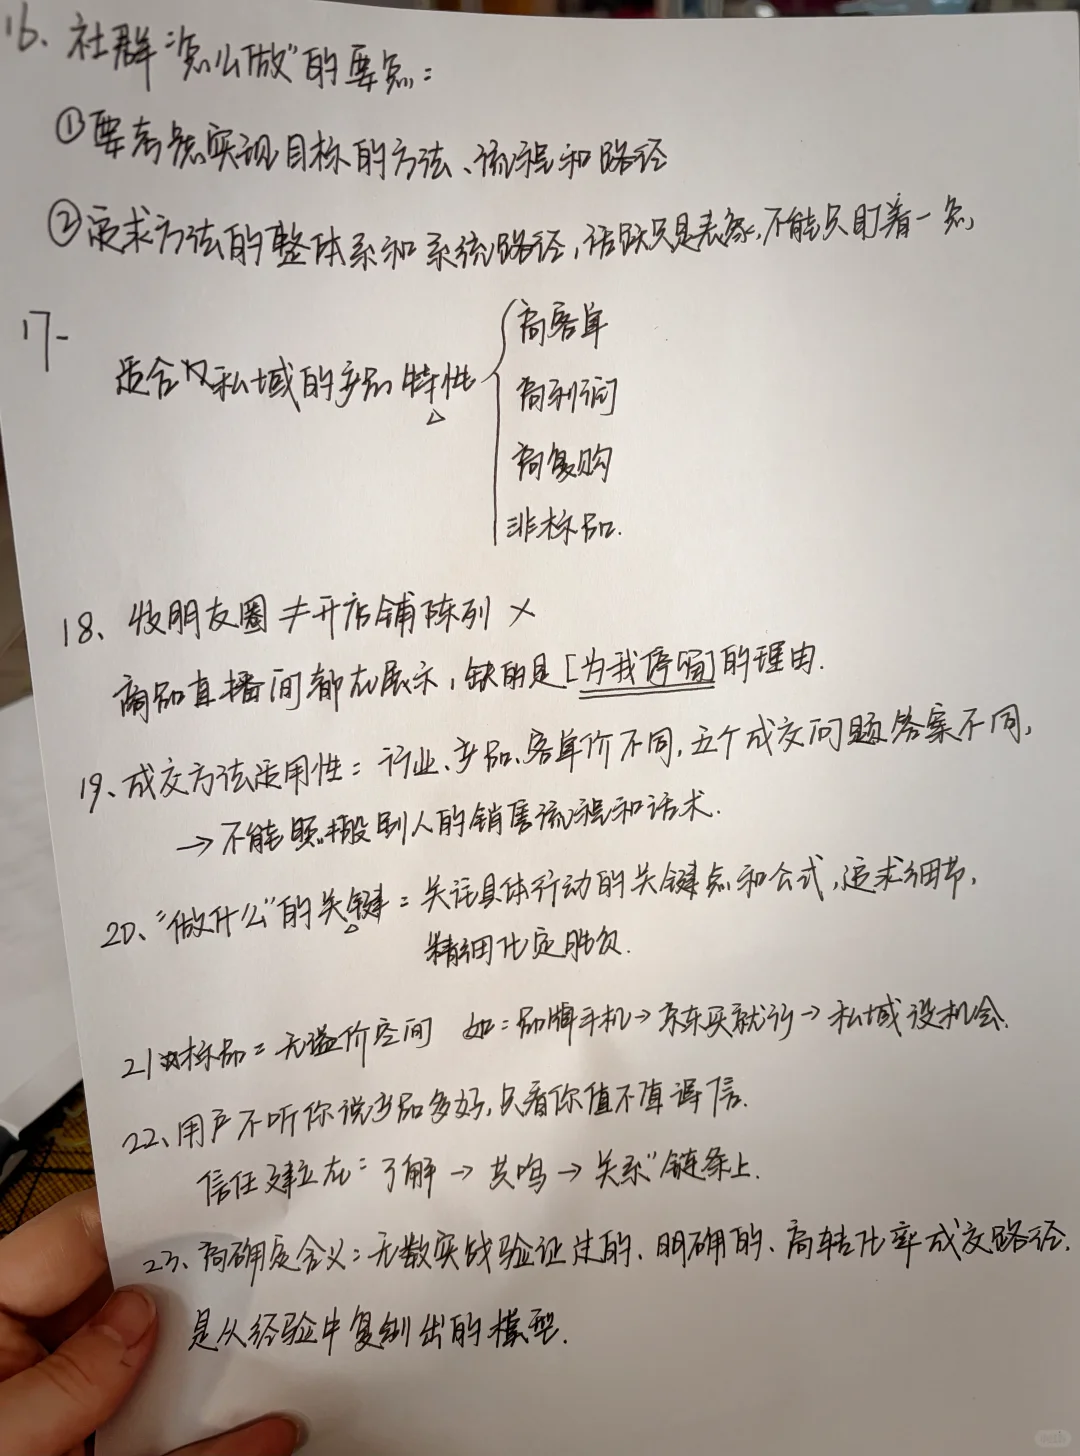 16、社群"怎么做"的要点:
①要考虑实现目标的方法、流程和路径
②追求方法的整体系和系统路径,活跃只是表象,不能只盯着一点,
17-
适合做私域的产品特性
高客单
高利润
高复购
非标品.
18、发朋友圈≠开店铺陈列 ×
商品直播间都在展示,缺的是[为我停留]的理由.
19、成交方法适用性:行业、产品、客单价不同,五个成交问题答案不同,
→不能照搬别人的销售流程和话术.
20、"做什么"的关键:关注具体行动的关键点和公式,追求细节,
精细化定胜负.
21、标品=无溢价空间 如:品牌手机→京东买就行→私域没机会.
22、用户不听你说产品多好,只看你值不值得信.
信任建立在"了解→共鸣→关系"链条上.
23、高确定含义:无数实战验证过的、明确的、高转化率成交路径.
是从经验中复制出的模型.